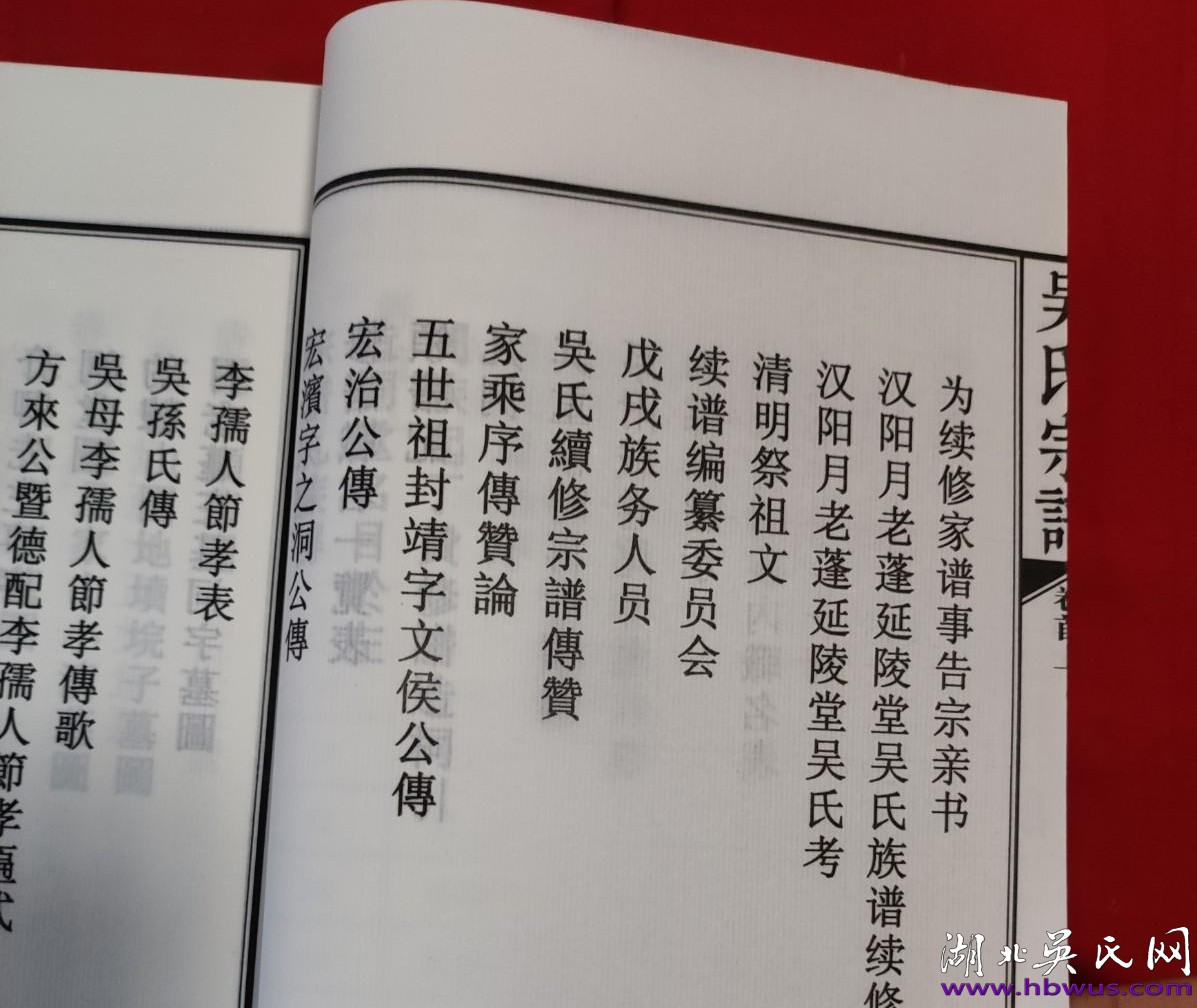 吳氏宗譜
卷首
为续修家谱事告宗亲书
汉阳月老蓬延陵堂吴氏族谱续修
汉阳月老蓬延陵堂吴氏考
清明祭祖文
续谱编纂委员会
戊戌族务人员
吳氏續修宗譜傳贊
家乘序傳贊論
五世祖封靖字文侯公傳
宏治公傳
宏濱字之洞公傳
李孺人節孝表
吳孫氏傳
吳母李孺人節孝傳歌
方來公暨德配李孺人節孝
湖北吴氏网
www.hbwus.com